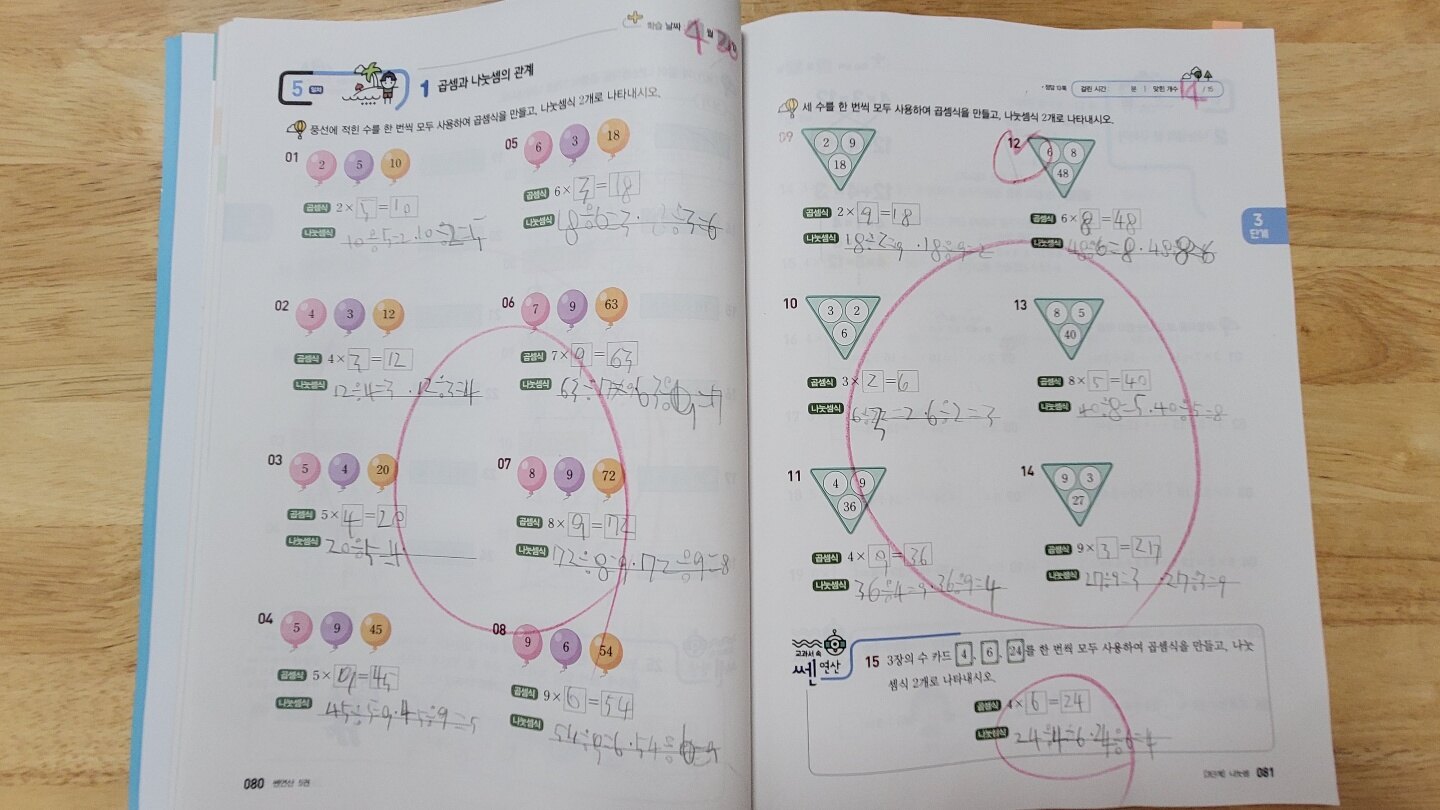 학습 날짜 4월
5 일차
1 곱셈과 나눗셈의 관계
풍선에 적힌 수를 한 번씩 모두 사용하여 곱셈식을 만들고, 나눗셈식 2개로 나타내시오.
01 2 5 10
곱셈식 2×5=10
나눗셈식 10÷5=2·10÷2=5
02 4 3 12
곱셈식 4×3=12
나눗셈식 12÷4=3·12÷3=4
03 5 4 20
곱셈식 5×4=20
나눗셈식 20÷5=4
04 5 9 45
곱셈식 5×9=45
나눗셈식 45÷5=9·45÷9=5
05 6 3 18
곱셈식 6×3=18
나눗셈식 18÷6=3·÷3=6
06 7 9 63
곱셈식 7×9=63
나눗셈식 63÷7=9 63÷9=7
07 8 9 72
곱셈식 8×9=72
나눗셈식 72÷8=9·72÷9=8
08 9 6 54
곱셈식 9×6=54
나눗셈식 54÷9=6·54÷6=9
080 쎈연산 5권
정답 13쪽 걸린 시간 분 맞힌 개수 14 /15
세 수를 한 번씩 모두 사용하여 곱셈식을 만들고, 나눗셈식 2개로 나타내시오.
09 2 9 18
곱셈식 2×9=18
나눗셈식 18÷2=9·18÷9=2
10 3 2 6
곱셈식 3×2=6
나눗셈식 6÷3=2·6÷2=3
11 4 9 36
곱셈식 4×9=36
나눗셈식 36÷4=9·36÷9=4
12 6 8 48
곱셈식 6×8=48
나눗셈식 48÷6=8·48÷8=6
13 8 5 40
곱셈식 8×5=40
나눗셈식 40÷8=5·40÷5=8
14 9 3 27
곱셈식 9×3=27
나눗셈식 27÷9=3·27÷3=9
3
단계
교과서 속
쎈 연산
15 3장의 수 카드 4, 6, 24를 한 번씩 모두 사용하여 곱셈식을 만들고, 나눗
셈식 2개로 나타내시오.
곱셈식 4×6=24
나눗셈식 24÷4=6·24÷6=4
[3단계] 나눗셈 081